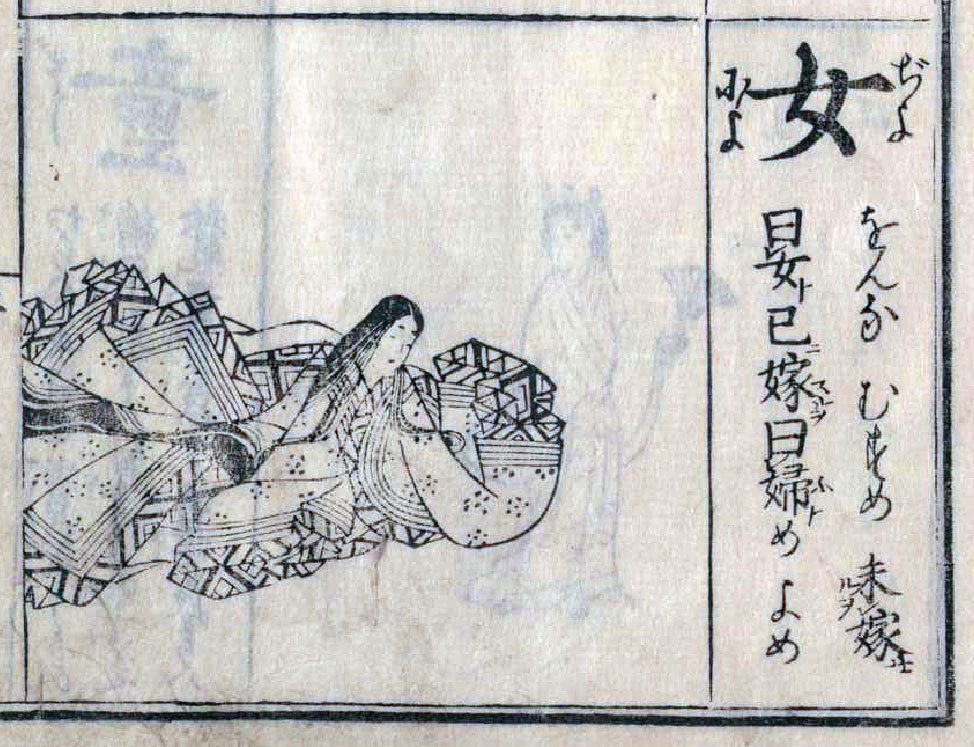 ぢよ
女
によ
をんな むすめ 未嫁
曰女ト已ニ嫁曰婦ト め よめ